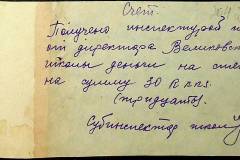 Счет.
Получено инспектурой
от директора Великовс
школы деньги на
на сумму 30 R м.
(тридцать).
Субинспектор школ